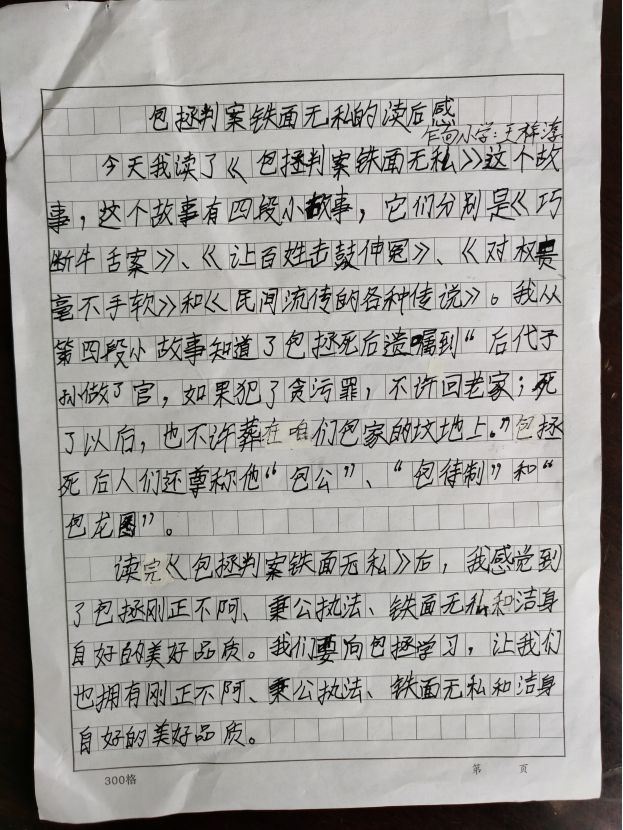 包拯判案铁面无私的读后感
小学:王祥淳
今天我读了《包拯判案铁面无私》这个故
事，这个故事有四段小故事，它们分别是《巧
断牛舌案》、《让百姓击鼓伸冤》、《对权贵
毫不手软》和《民间流传的各种传说》。我从
第四段小故事知道了包拯死后遗嘱到“后代子
孙做了官，如果犯了贪污罪，不许回老家；死
了以后，也不许葬在咱们包家的坟地上。”包拯
死后人们还尊称他“包公”、“包待制”和“
包龙图”。
读完《包拯判案铁面无私》后，我感觉到
了包拯刚正不阿、秉公执法、铁面无私和洁身
自好的美好品质。我们要向包拯学习，让我们
也拥有刚正不阿、秉公执法、铁面无私和洁身
自好的美好品质。
300格
第 页